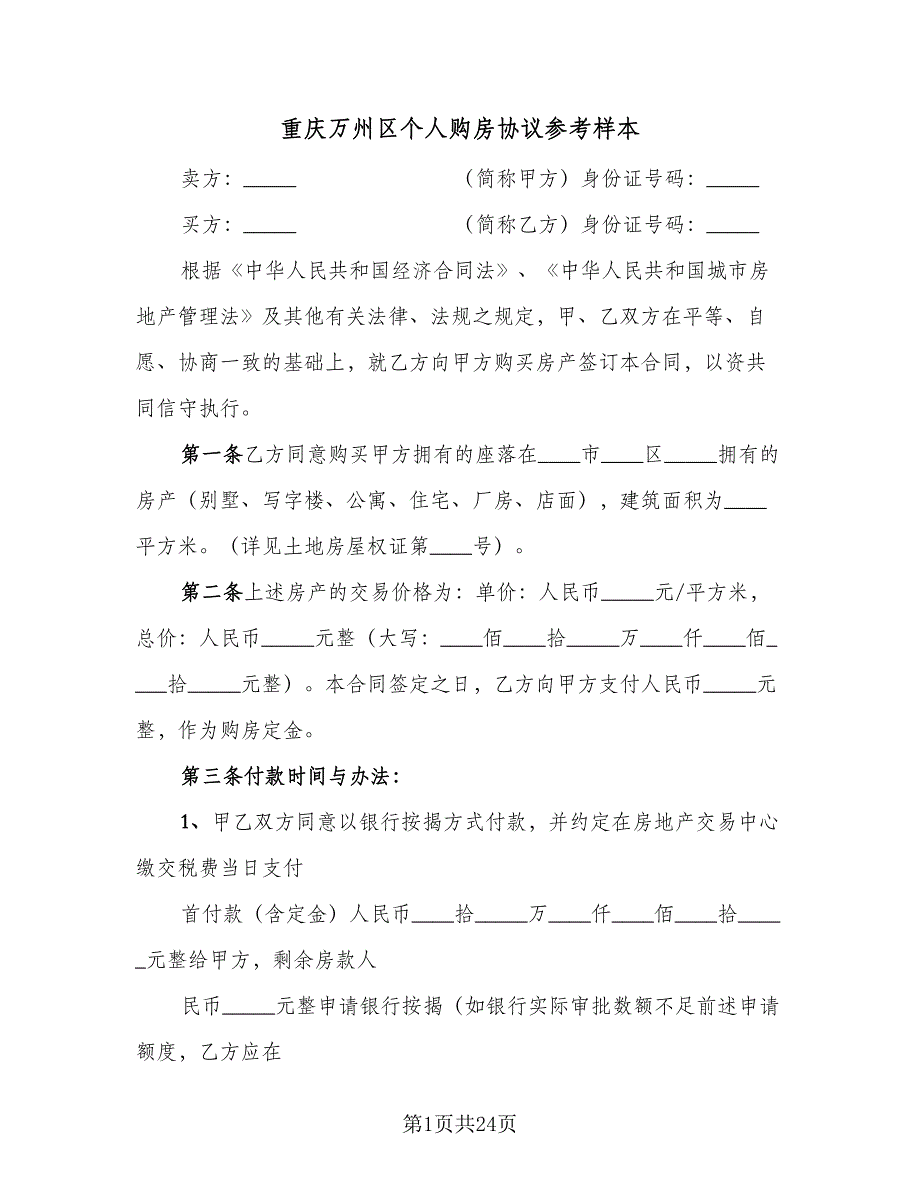 重庆万州区个人购房协议参考样本
卖方：_____ （简称甲方）身份证号码：_____
买方：_____ （简称乙方）身份证号码：_____
根据《中华人民共和国经济合同法》、《中华人民共和国城市房
地产管理法》及其他有关法律、法规之规定，甲、乙双方在平等、自
愿、协商一致的基础上，就乙方向甲方购买房产签订本合同，以资共
同信守执行。
第一条乙方同意购买甲方拥有的座落在____市____区_____拥有的
房产（别墅、写字楼、公寓、住宅、厂房、店面），建筑面积为____
平方米。（详见土地房屋权证第____号）。
第二条上述房产的交易价格为：单价：人民币_____元/平方米，
总价：人民币_____元整（大写：____佰____拾_____万____仟____佰_
___拾_____元整）。本合同签定之日，乙方向甲方支付人民币_____元
整，作为购房定金。
第三条付款时间与办法：
1、甲乙双方同意以银行按揭方式付款，并约定在房地产交易中心
缴交税费当日支付
首付款（含定金）人民币____拾_____万____仟____佰____拾____
_元整给甲方，剩余房款人
民币_____元整申请银行按揭（如银行实际审批数额不足前述申请
额度，乙方应在
第1页共24页